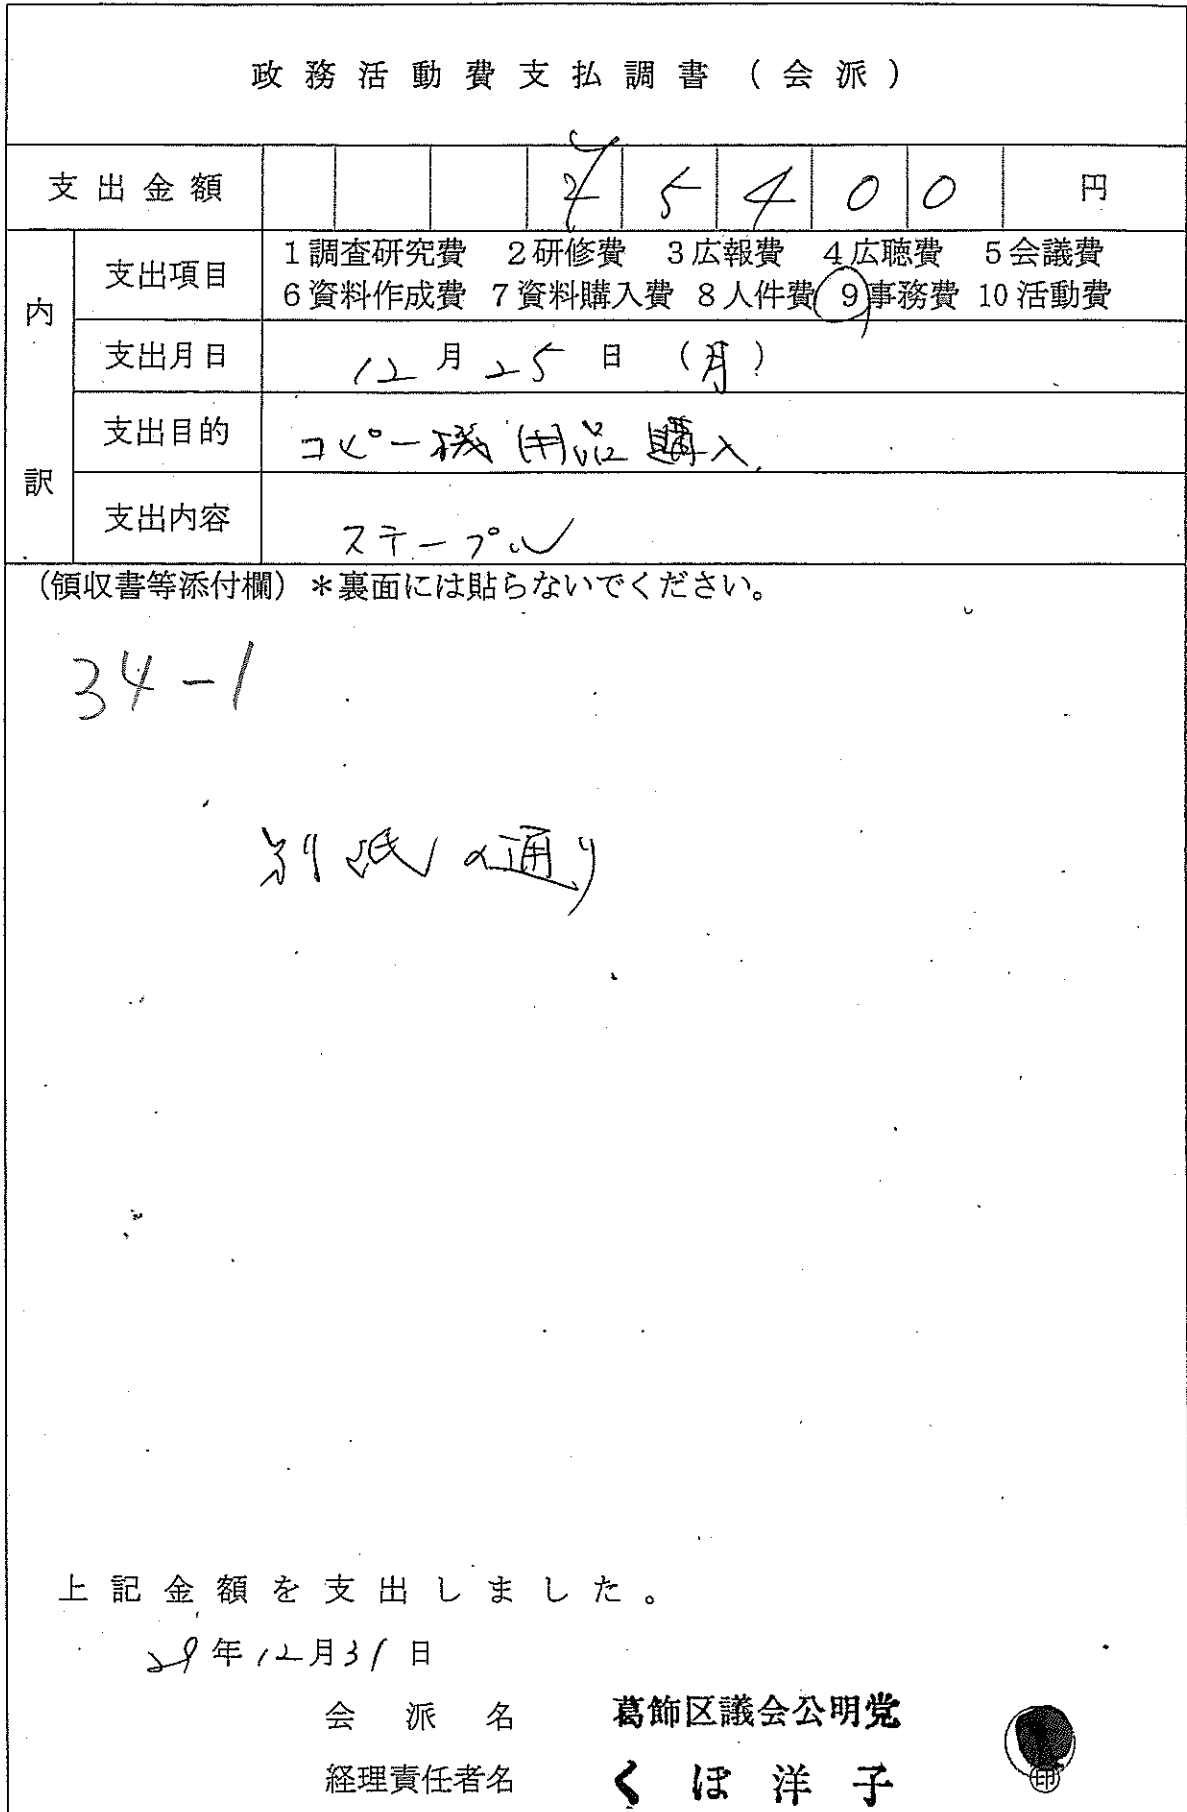 政務活動費支払調書（会派）
支出金額 ¥ 5 4 0 0 円
内訳
支出項目 1調査研究費 2研修費 3広報費 4広聴費 5会議費
6資料作成費 7資料購入費 8人件費 9事務費 10活動費
支出月日 12月25日（月）
支出目的 コピー機付品購入
支出内容 ステープル
（領収書等添付欄）＊裏面には貼らないでください。
34-1
別紙の通り
上記金額を支出しました。
29年12月31日
会派名 葛飾区議会公明党
経理責任者名 くぼ洋子
印